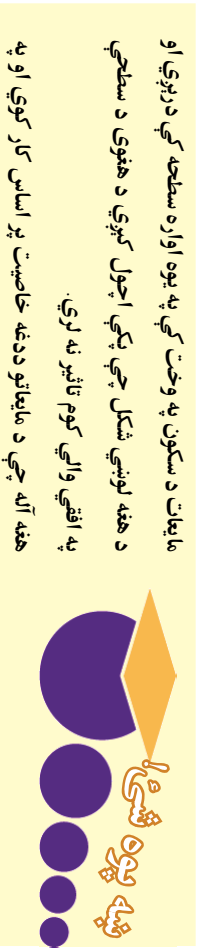 ښه پوه شئ!
مایعات د سکون په وخت کې په یوه اواره سطحه کې دریږي او
د هغه لوښي شکل چې پکې اچول کیږي د هغوی د سطحې
په افقي والي کوم تاثیر نه لري.
هغه آله چې د مایعاتو ددغه خاصیت پر اساس کار کوي او په